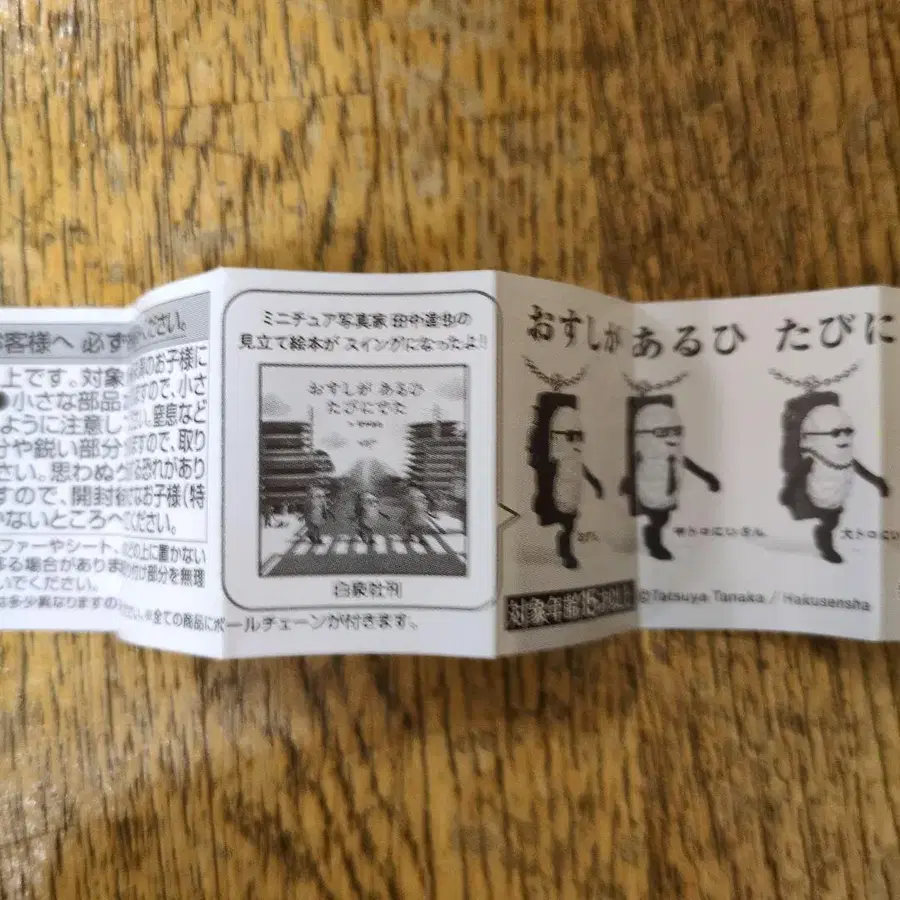 お客様へ 必ず
ください。
上です。対象
のお子様に
小さな部品
ますので、小さ
ように注意し
い。窒息など
分や鋭い部分
ますので、取り
さい。思わぬ
る恐れがあり
すので、開封
なお子様(特
ないところへ
ください。
ファーやシート、
どの上に置かない
る場合があり
付け部分を無理
いでください。
は多少異なりますの
※全ての商品にボールチェーンが付きます。
ミニチュア写真家 田中達也の
見立て絵本が スイングになったよ!!
おすしが あるひ
たびにでた
白泉社刊
おすしが あるひ たびに
中トロにいさん
大トロにい
対象年齢15才以上
©Tatsuya Tanaka / Hakusensha